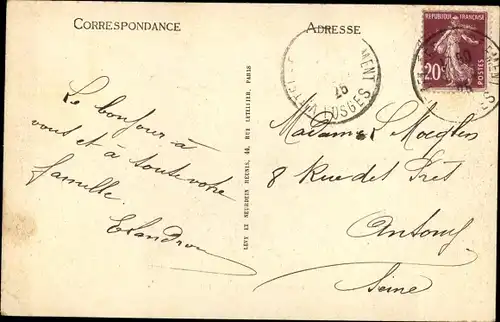 CORRESPONDANCE
ADRESSE
RÉPUBLIQUE FRANÇAISE
20c
POSTES
26
VOSGES
Le bonjour à
vous et à toute votre
famille
LÉVY ET NEURDEIN RÉUNIS, 44, RUE LETELLIER, PARIS
Madame L Moeglin
8 Rue des Prés
Antony
Seine